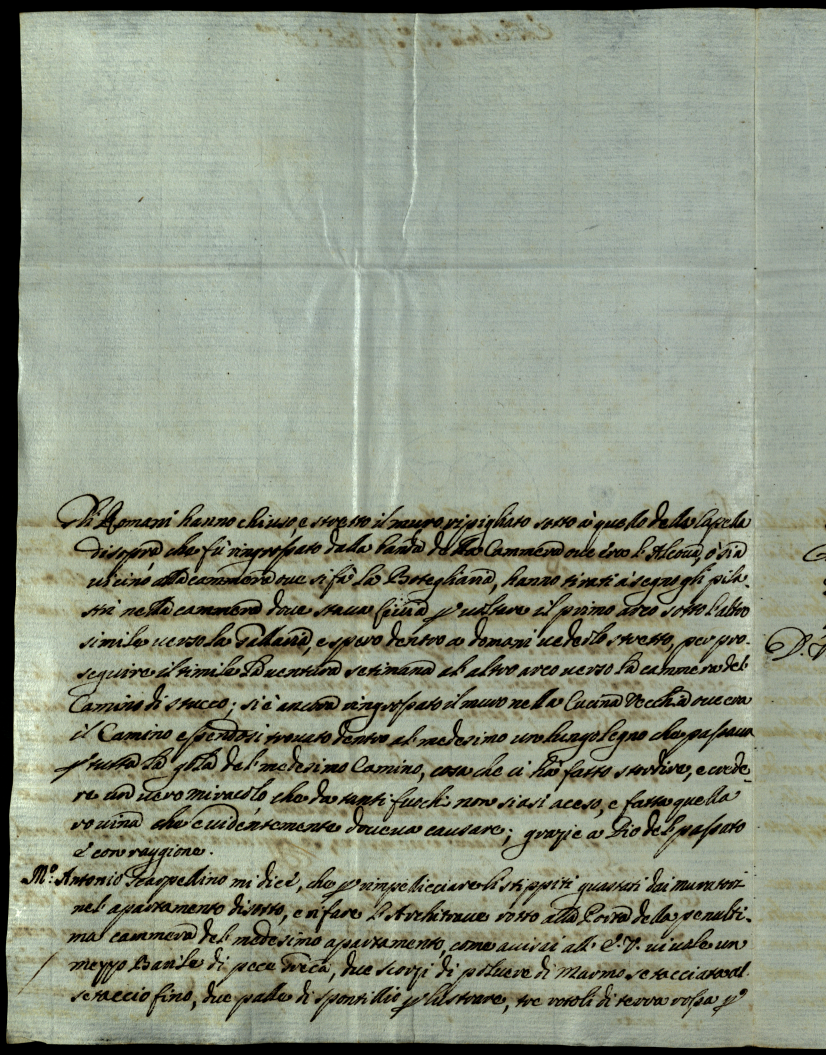 Li Romani hanno chiuso, e stretto il muro ripigliato sotto à quello della Capella
di sopra che fù ringrossato dalla banda della Cammera ove era l'Alcova, ò sia
vicino alla cammera ove si fà la Botegliaria, hanno tirati à segno gli pila-
stri nella cammera dove stava p voltare il primo arco sotto l'altro
simile verso la Gallaria, e spero dentro a domani vederlo stretto, per pro-
seguire il simile la ventura settimana al altro arco verso la cammera del
Camino di stucco; si è ancora ringrossato il muro nella Cucina Vecchia ove era
il Camino essendosi trovato dentro al medesimo un lungo legno che passava
p tutta la gola del medesimo Camino, cosa che ci hà fatto stordire, e crede-
re un vero miracolo che da tanti fuochi non siasi aceso, e fatta quella
rovina che evidentemente doveva causare; grazie a Dio del passato
è con raggione.
M.º Antonio Scarpellino mi dice, che p rimpellicciare li stippiti guastati dai muratori
nel apartamento di sotto, e rifare l'Architrave rotto alla Porta della penulti-
ma cammera del medesimo apartamento, come avisai all' E.V. vi vole un
mezzo Barile di pece Greca, due scorzi di polvere di Marmo setacciata al
setaccio fino, due palle di spontillio p lustrare, tre rotoli di terra rossa p
D.